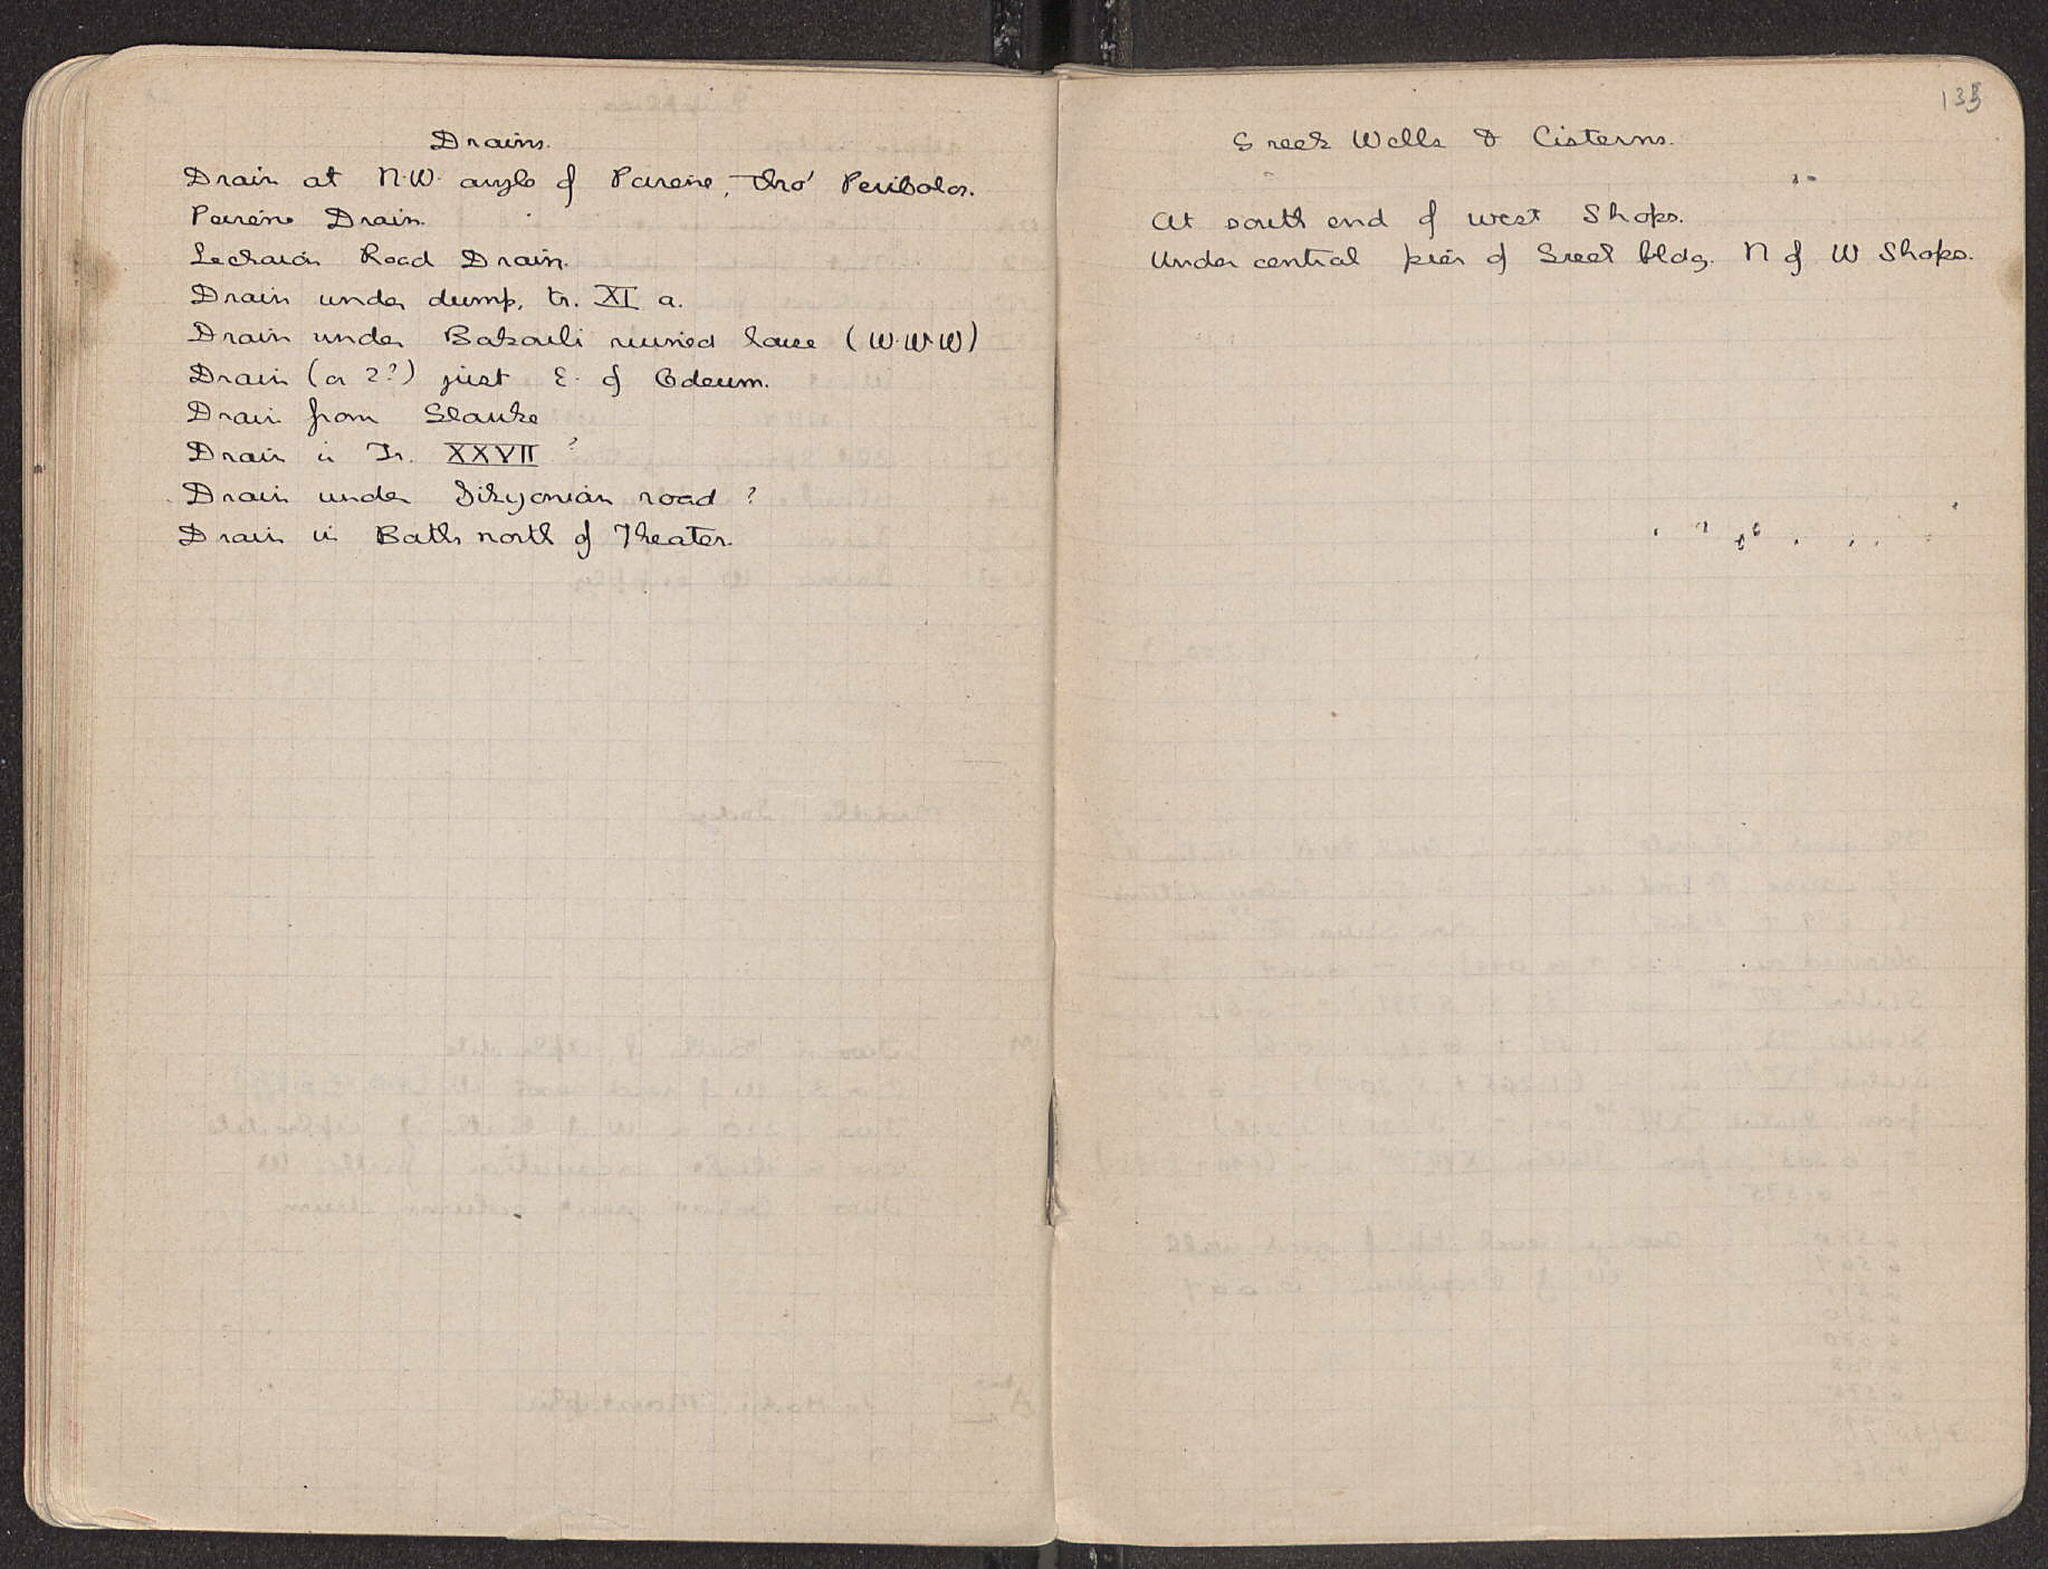 Drains.
Drain at N.W. angle of Peirene, thro' Peribolos.
Peirene Drain.
Lechaion Road Drain.
Drain under dump, tr. XI a.
Drain under Bakouli ruined house (W.W.W)
Drain (or 2?) just E. of Odeum.
Drain from Glauke
Drain in Tr. XXVII ?
Drain under Sikyonian road ?
Drain in Bath north of Theater.
135
Greek Wells & Cisterns.
At south end of west Shops.
Under central pier of Greek bldg. N of W Shops.